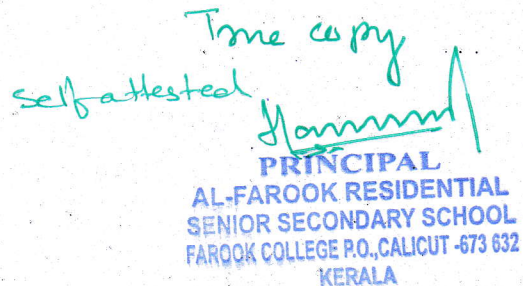 True copy
Self attested
PRINCIPAL
AL-FAROOK RESIDENTIAL
SENIOR SECONDARY SCHOOL
FAROOK COLLEGE P.O.,CALICUT -673 632
KERALA